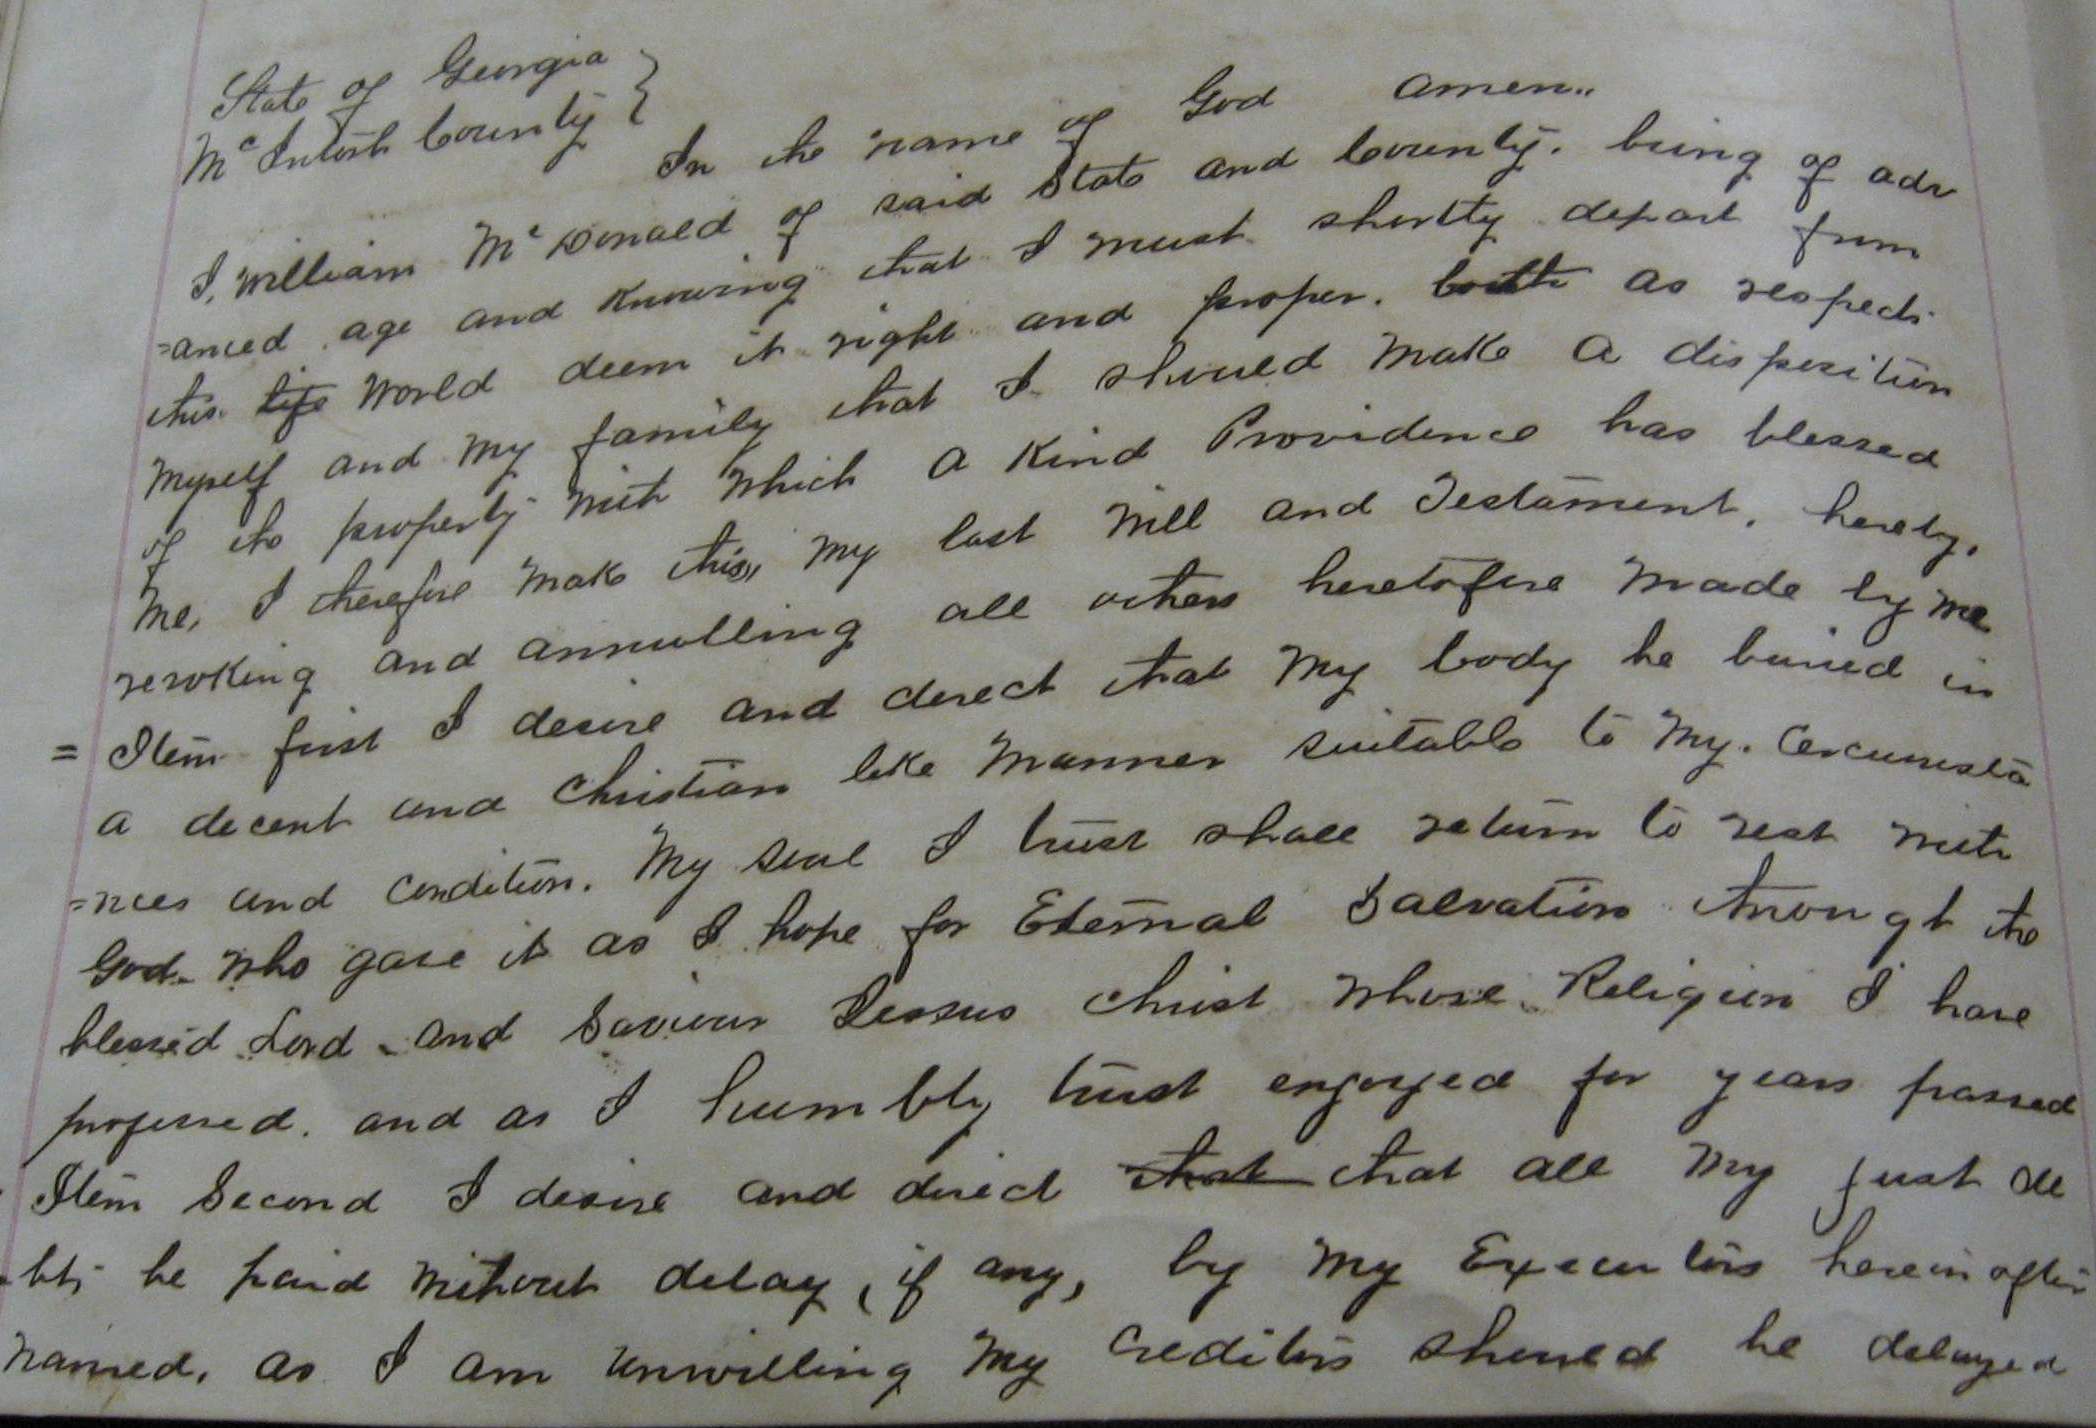 State of Georgia }
McIntosh County }
In the name of God amen..
I, William McDonald of said State and County. being of adv
=anced age and Knowing that I must shortly depart from
this. ~~life~~ World deem it right and proper. both as respects
Myself and My family that I should Make a disposition
of the property With Which a Kind Providence has blessed
Me, I therefore Make this,, My last Will and Testament, hereby,
revoking and annulling all others heretofore Made by Me
= Item first I desire and derect that My body be buried in
a decent and Christian like Manner suitable to My. Circumsta
=nces and Condition. My soul I trust shall return to rest with
God. Who gave it as I hope for Eternal Salvation through the
blessed Lord and Saviour Jessus Christ Whose Religion I have
professed. and as I humbly trust enjoyed for years passed
Item Second I desire and direct ~~that~~ that all My just de
-bts be paid Without delay, if any, by My Executors herein after
Named, as I am Unwilling My Creditors should be delayed